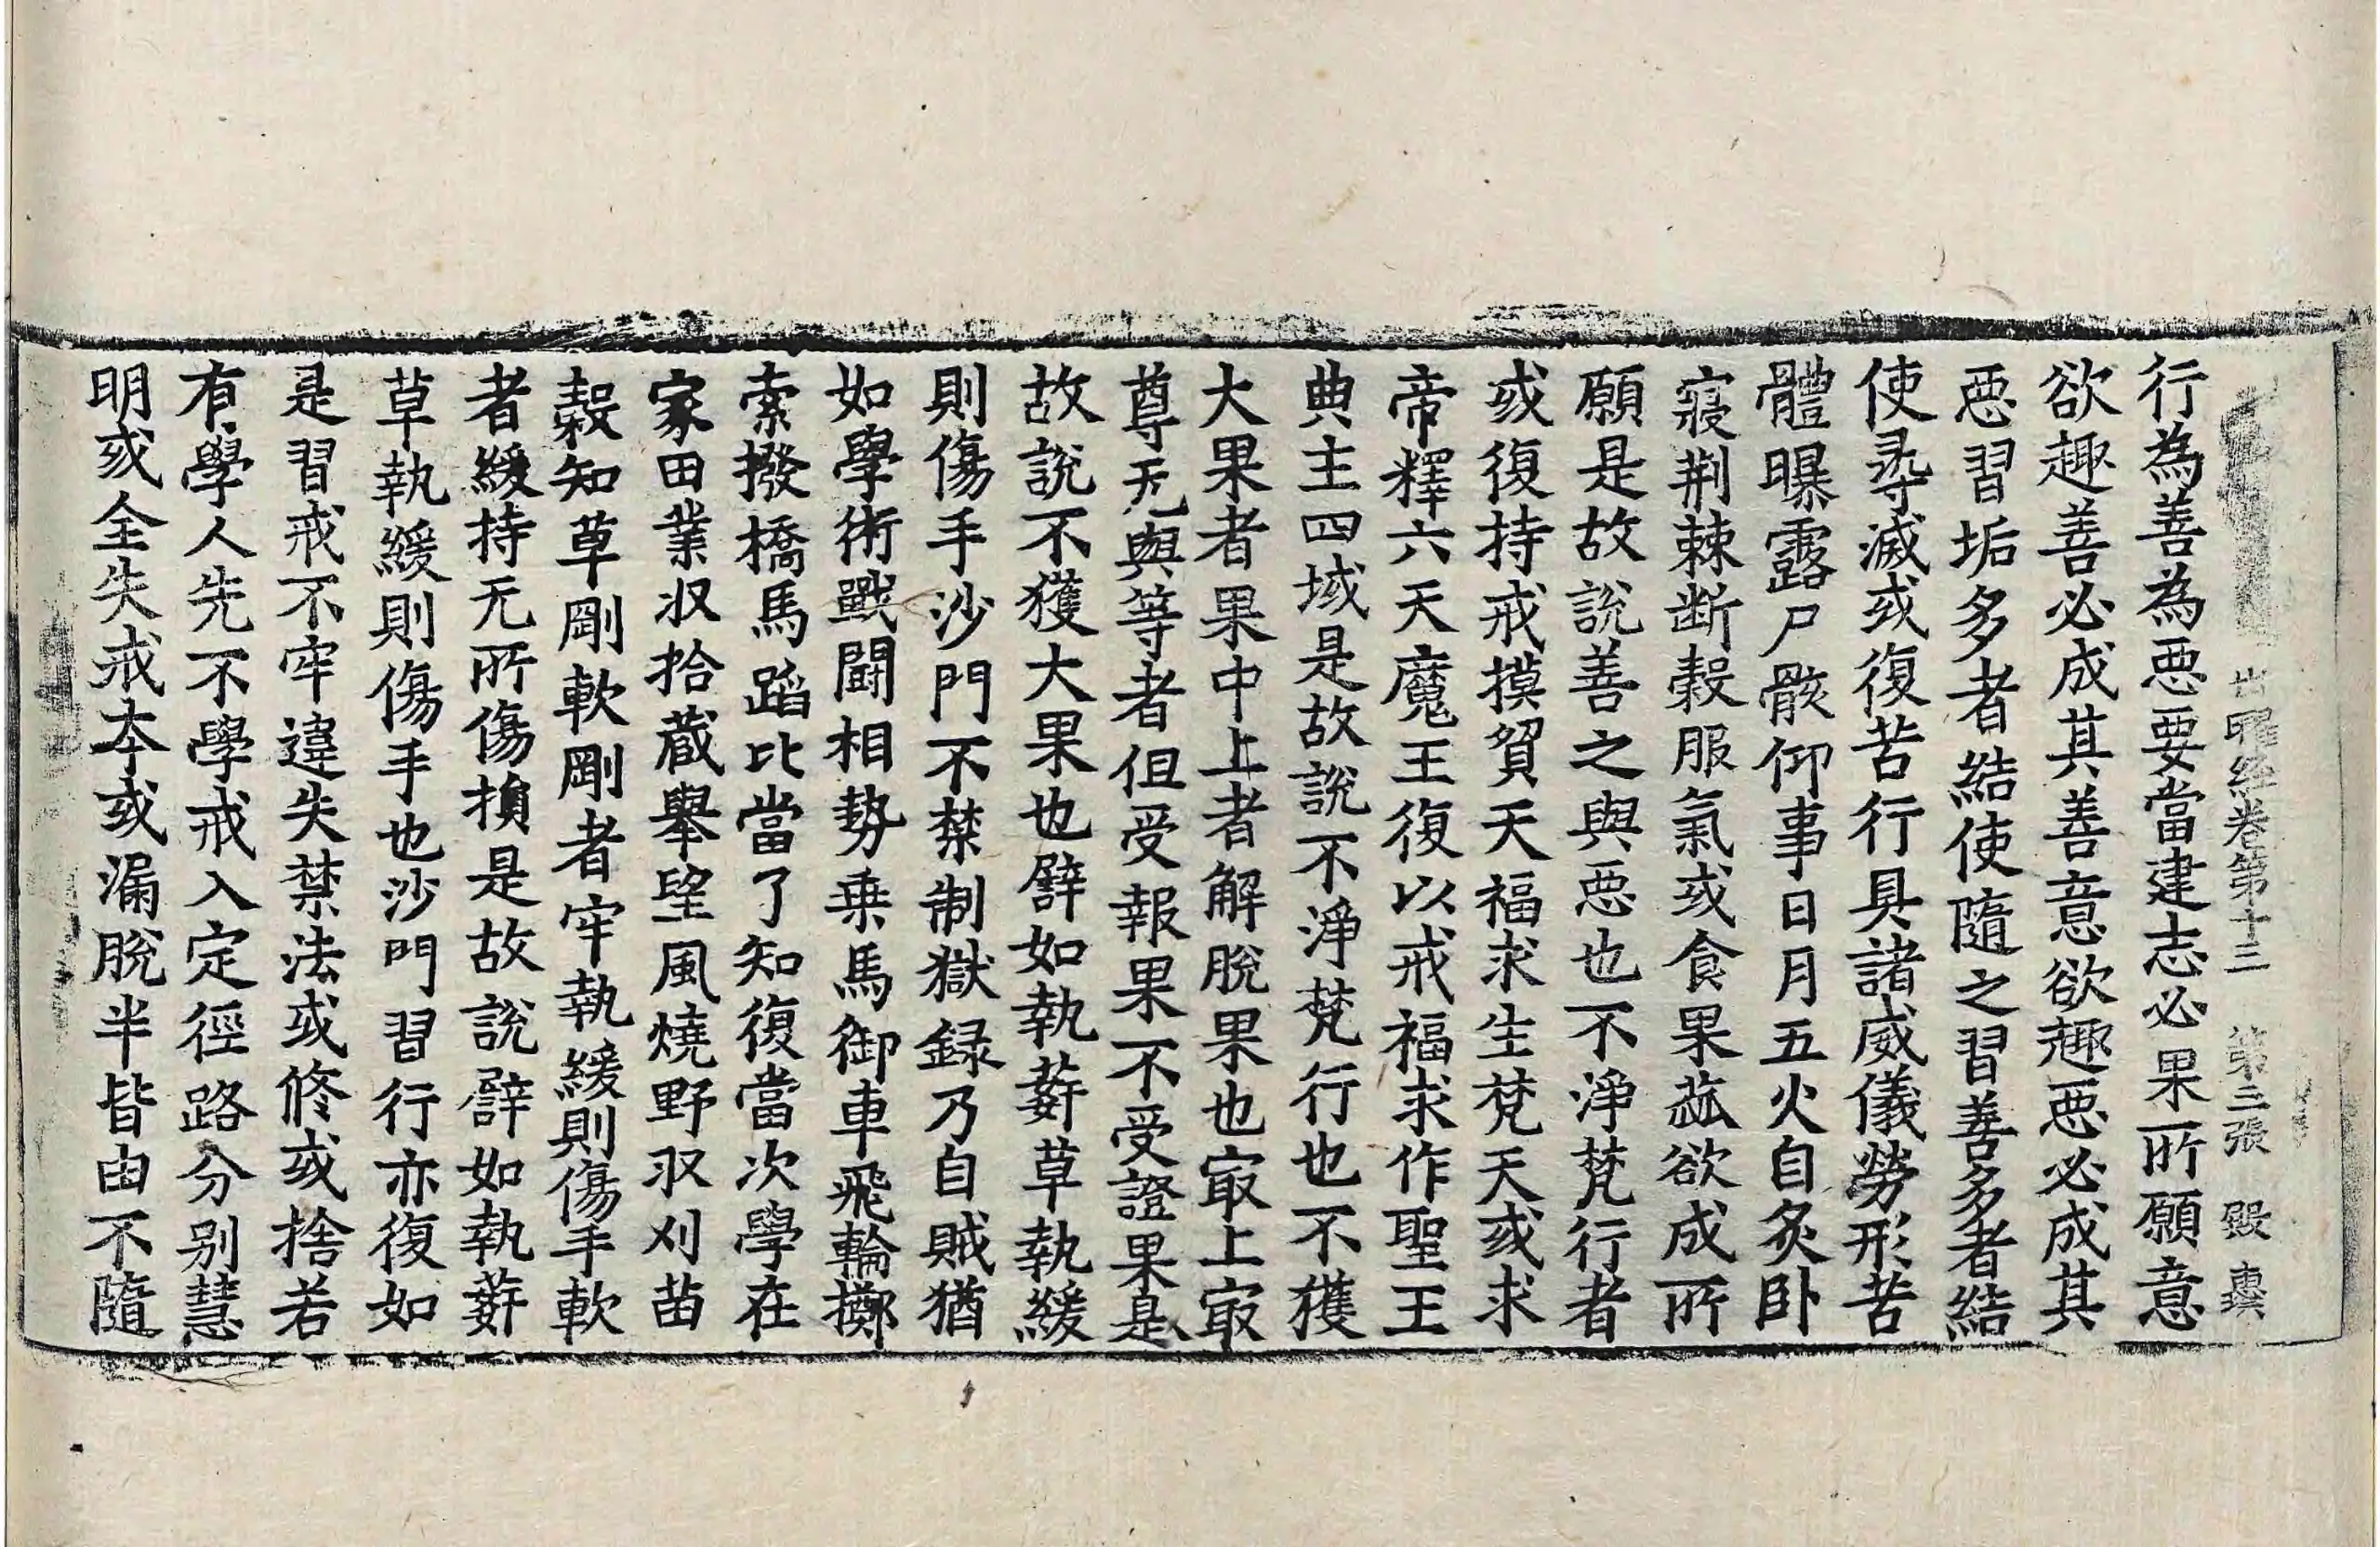 出曜經卷第十三　第三張　殷
行為善為惡要當建志必果所願意
欲趣善必成其善意欲趣惡必成其
惡習垢多者結使隨之習善多者結
使尋滅或復苦行具諸威儀勞形苦
體曝露尸骸仰事日月五火自炙卧
寢荆棘斷穀服氣或食果蓏欲成所
願是故說善之與惡也不淨梵行者
或復持戒摸貿天福求生梵天或求
帝釋六天魔王復以戒福求作聖王
典主四域是故說不淨梵行也不獲
大果者果中上者解脫果也冣上冣
尊无與等者但受報果不受證果是
故說不獲大果也譬如執菥草執緩
則傷手沙門不禁制獄録乃自賊猶
如學術戰鬪相勢乘馬御車飛輪擲
索撥橋馬蹈比當了知復當次學在
家田業収拾蔵舉望風燒野収刈苗
穀知草剛軟剛者牢執緩則傷手軟
者緩持无所傷損是故說譬如執菥
草執緩則傷手也沙門習行亦復如
是習戒不牢違失禁法或修或捨若
有學人先不學戒入定徑路分別慧
明或全失戒本或漏脫半皆由不隨